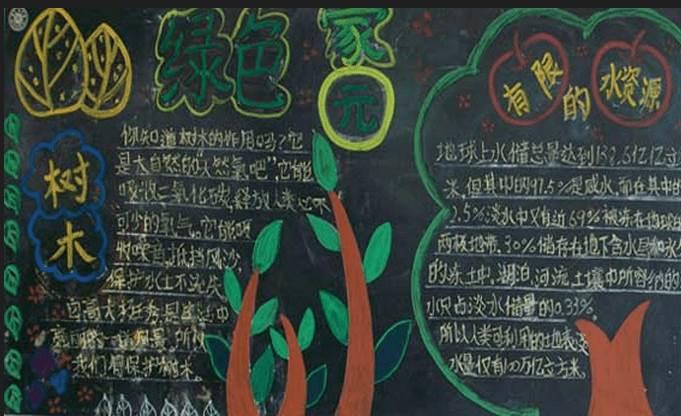 绿色
家
元
树
木
你知道树木的作用吗?它
是大自然的"天然氧吧",它能够
吸收二氧化碳,释放人类必不
可少的氧气。它能吸
收噪音,抵挡风沙,
保护水土不流失
我们得保护树木。
有限
的
水资源
地球上水储总量达到138.6亿亿立
米,但其中的97.5%是咸水,而在其中的
2.5%淡水中又有近69%被冻在地球的
两极地带,30%储存在地下含水层和永久
的冻土中,湖泊,河流,土壤中所容纳的
水只占淡水储量的0.33%。
所以人类可利用的地表淡
水量仅有100万亿立方米。